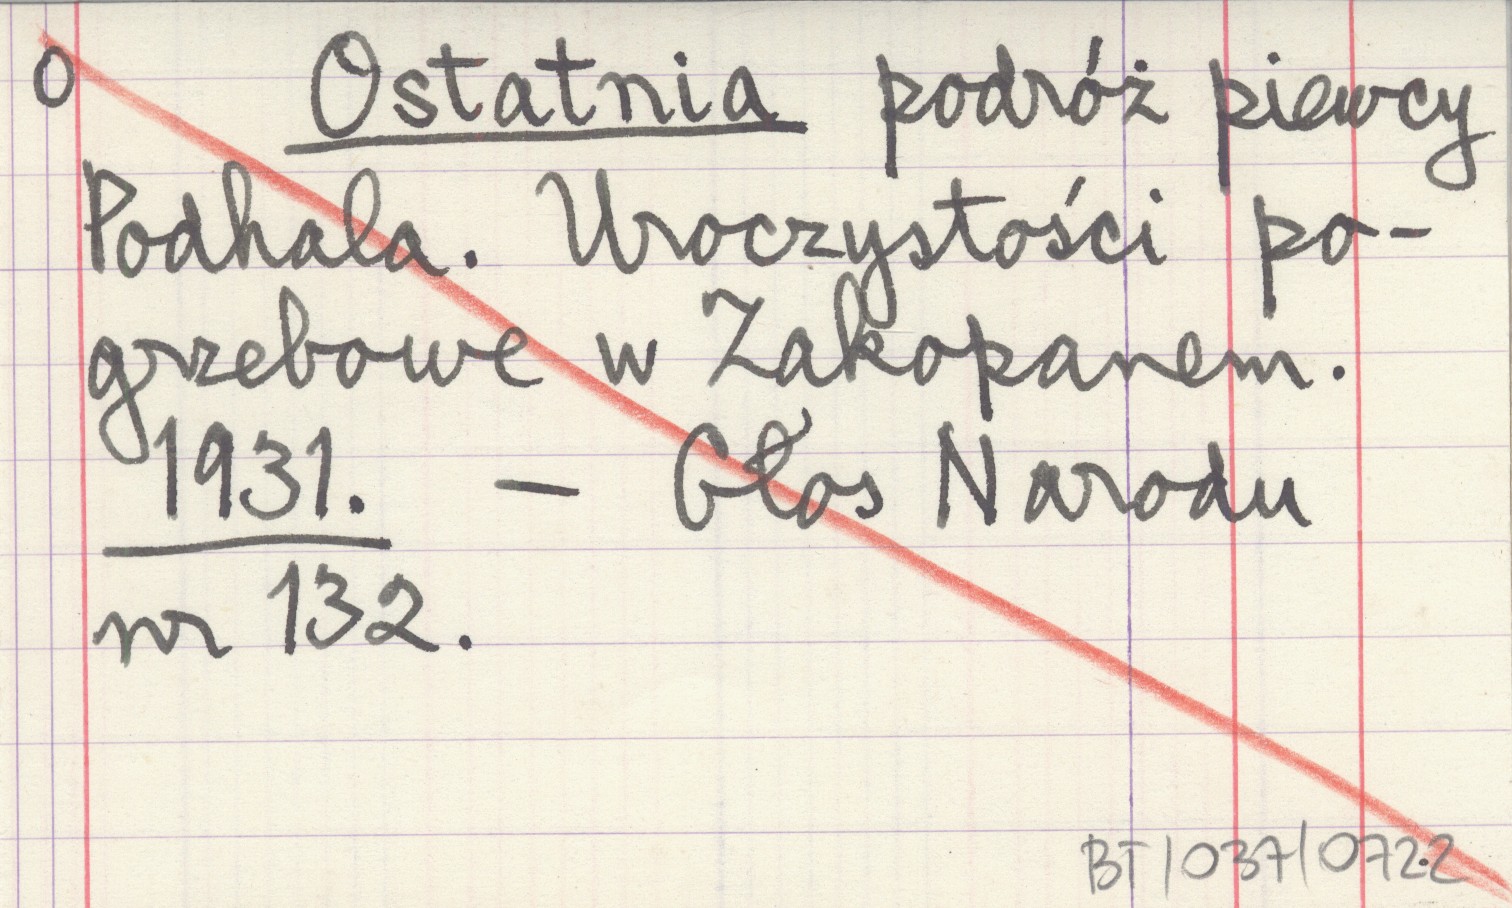 O Ostatnia podróż piewcy
Podhala. Uroczystości po-
grzebowe w Zakopanem.
1931. – Głos Narodu
nr 132.
BT/037/0722